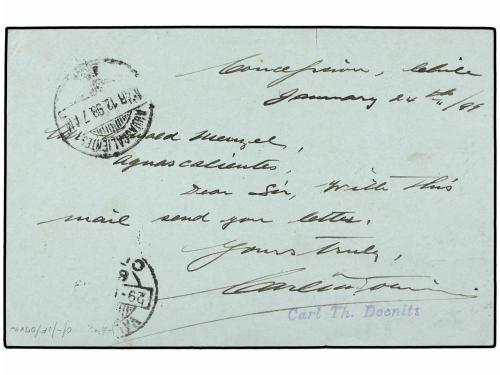 Concepcion, Chile
January 24th/99
Menzel,
Aguascalientes,
Dear Sir, With this
mail send you letter.
Yours truly,
Carl Th. Doenitz
AGUASCALIENTES
MAR 12 99
29-1